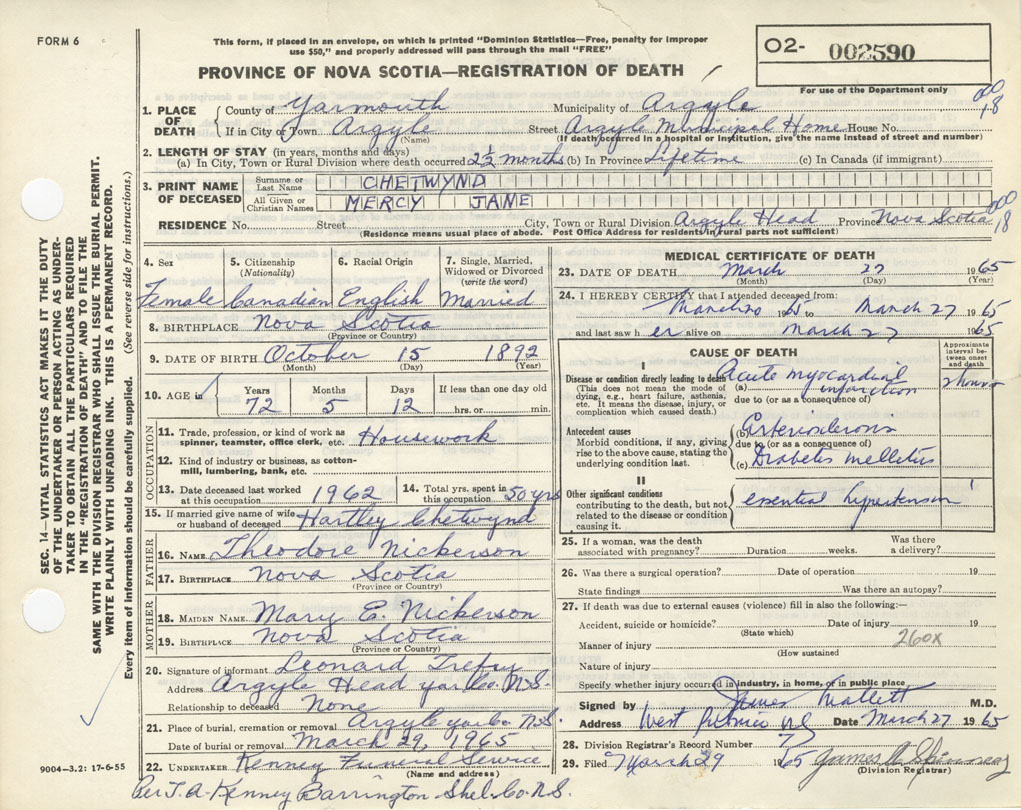 FORM 6
This form, if placed in an envelope, on which is printed "Dominion Statistics—Free, penalty for improper
use $50," and properly addressed will pass through the mail "FREE"
PROVINCE OF NOVA SCOTIA—REGISTRATION OF DEATH
O2- 002590
For use of the Department only
1. PLACE OF DEATH County of Yarmouth Municipality of Argyle
If in City or Town Argyle Street Argyle Municipal Home House No.
(Name) (If death occurred in a hospital or institution, give the name instead of street and number)
2. LENGTH OF STAY (in years, months and days)
(a) In City, Town or Rural Division where death occurred 2½ months (b) In Province Lifetime (c) In Canada (if immigrant)
3. PRINT NAME OF DECEASED
Surname or Last Name CHETWYND
All Given or Christian Names MERCY JANE
RESIDENCE No. Street City, Town or Rural Division Argyle Head Province Nova Scotia
(Residence means usual place of abode. Post Office Address for residents in rural parts not sufficient)
4. Sex 5. Citizenship (Nationality) 6. Racial Origin 7. Single, Married, Widowed or Divorced (write the word)
Female Canadian English Married
8. BIRTHPLACE Nova Scotia
(Province or Country)
9. DATE OF BIRTH October 15 1892
(Month) (Day) (Year)
10. AGE in Years Months Days If less than one day old
72 5 12 hrs. or min.
OCCUPATION
11. Trade, profession or kind of work as spinner, teamster, office clerk, etc. Housework
12. Kind of industry or business, as cotton-mill, lumbering, bank, etc.
13. Date deceased last worked at this occupation 1962 14. Total yrs. spent in this occupation 50 yrs
15. If married give name of wife or husband of deceased Hartley Chetwynd
FATHER
16. NAME Theodore Nickerson
17. BIRTHPLACE Nova Scotia
(Province or Country)
MOTHER
18. MAIDEN NAME Mary E. Nickerson
19. BIRTHPLACE Nova Scotia
(Province or Country)
20. Signature of informant Leonard Trefry
Address Argyle Head Yar. Co. N.S.
Relationship to deceased None
21. Place of burial, cremation or removal Argyle Yar Co N.S.
Date of burial or removal March 29, 1965
22. UNDERTAKER Kenney Funeral Service
(Name and address)
Per J. A. Kenney Barrington Shel. Co. N.S.
MEDICAL CERTIFICATE OF DEATH
23. DATE OF DEATH March 27 1965
(Month) (Day) (Year)
24. I HEREBY CERTIFY that I attended deceased from:
1965 to March 27 1965
and last saw her alive on March 27 1965
CAUSE OF DEATH
Approximate interval between onset and death
I
Disease or condition directly leading to death (a) Acute myocardial infarction
(This does not mean the mode of dying, e.g., heart failure, asthenia, etc. It means the disease, injury, or complication which caused death.)
due to (or as a consequence of)
Antecedent causes (b)
Morbid conditions, if any, giving rise to the above cause, stating the underlying condition last.
due to (or as a consequence of)
(c) Diabetes mellitus
II
Other significant conditions contributing to the death, but not related to the disease or condition causing it. essential hypertension
25. If a woman, was the death associated with pregnancy? Duration weeks. Was there a delivery?
26. Was there a surgical operation? Date of operation 19
State findings Was there an autopsy?
27. If death was due to external causes (violence) fill in also the following:—
Accident, suicide or homicide? Date of injury 19
(State which)
Manner of injury 260X
(How sustained
Nature of injury
Specify whether injury occurred in industry, in home, or in public place
Signed by M.D.
Address West Pubnico NS Date March 27 1965
28. Division Registrar's Record Number 7
29. Filed March 29 1965
(Division Registrar)
SEC. 14—VITAL STATISTICS ACT MAKES IT THE DUTY
OF THE UNDERTAKER OR PERSON ACTING AS UNDER-
TAKER TO OBTAIN ALL THE PARTICULARS REQUIRED
IN THE "REGISTRATION OF DEATH" AND TO FILE THE
SAME WITH THE DIVISION REGISTRAR WHO SHALL ISSUE THE BURIAL PERMIT.
WRITE PLAINLY WITH UNFADING INK. THIS IS A PERMANENT RECORD.
Every item of information should be carefully supplied. (See reverse side for instructions.)
9004—3.2: 17-6-55